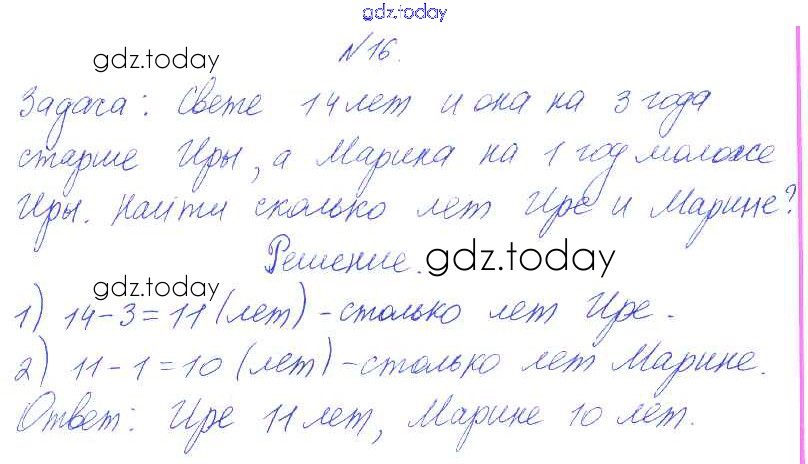 gdz.today
№16.
gdz.today
Задача: Свете 14 лет и она на 3 года
старше Иры, а Марина на 1 год моложе
Иры. Найти сколько лет Ире и Марине?
Решение.
gdz.today
gdz.today
1) 14-3=11 (лет) - столько лет Ире.
2) 11-1=10 (лет) - столько лет Марине.
Ответ: Ире 11 лет, Марине 10 лет.